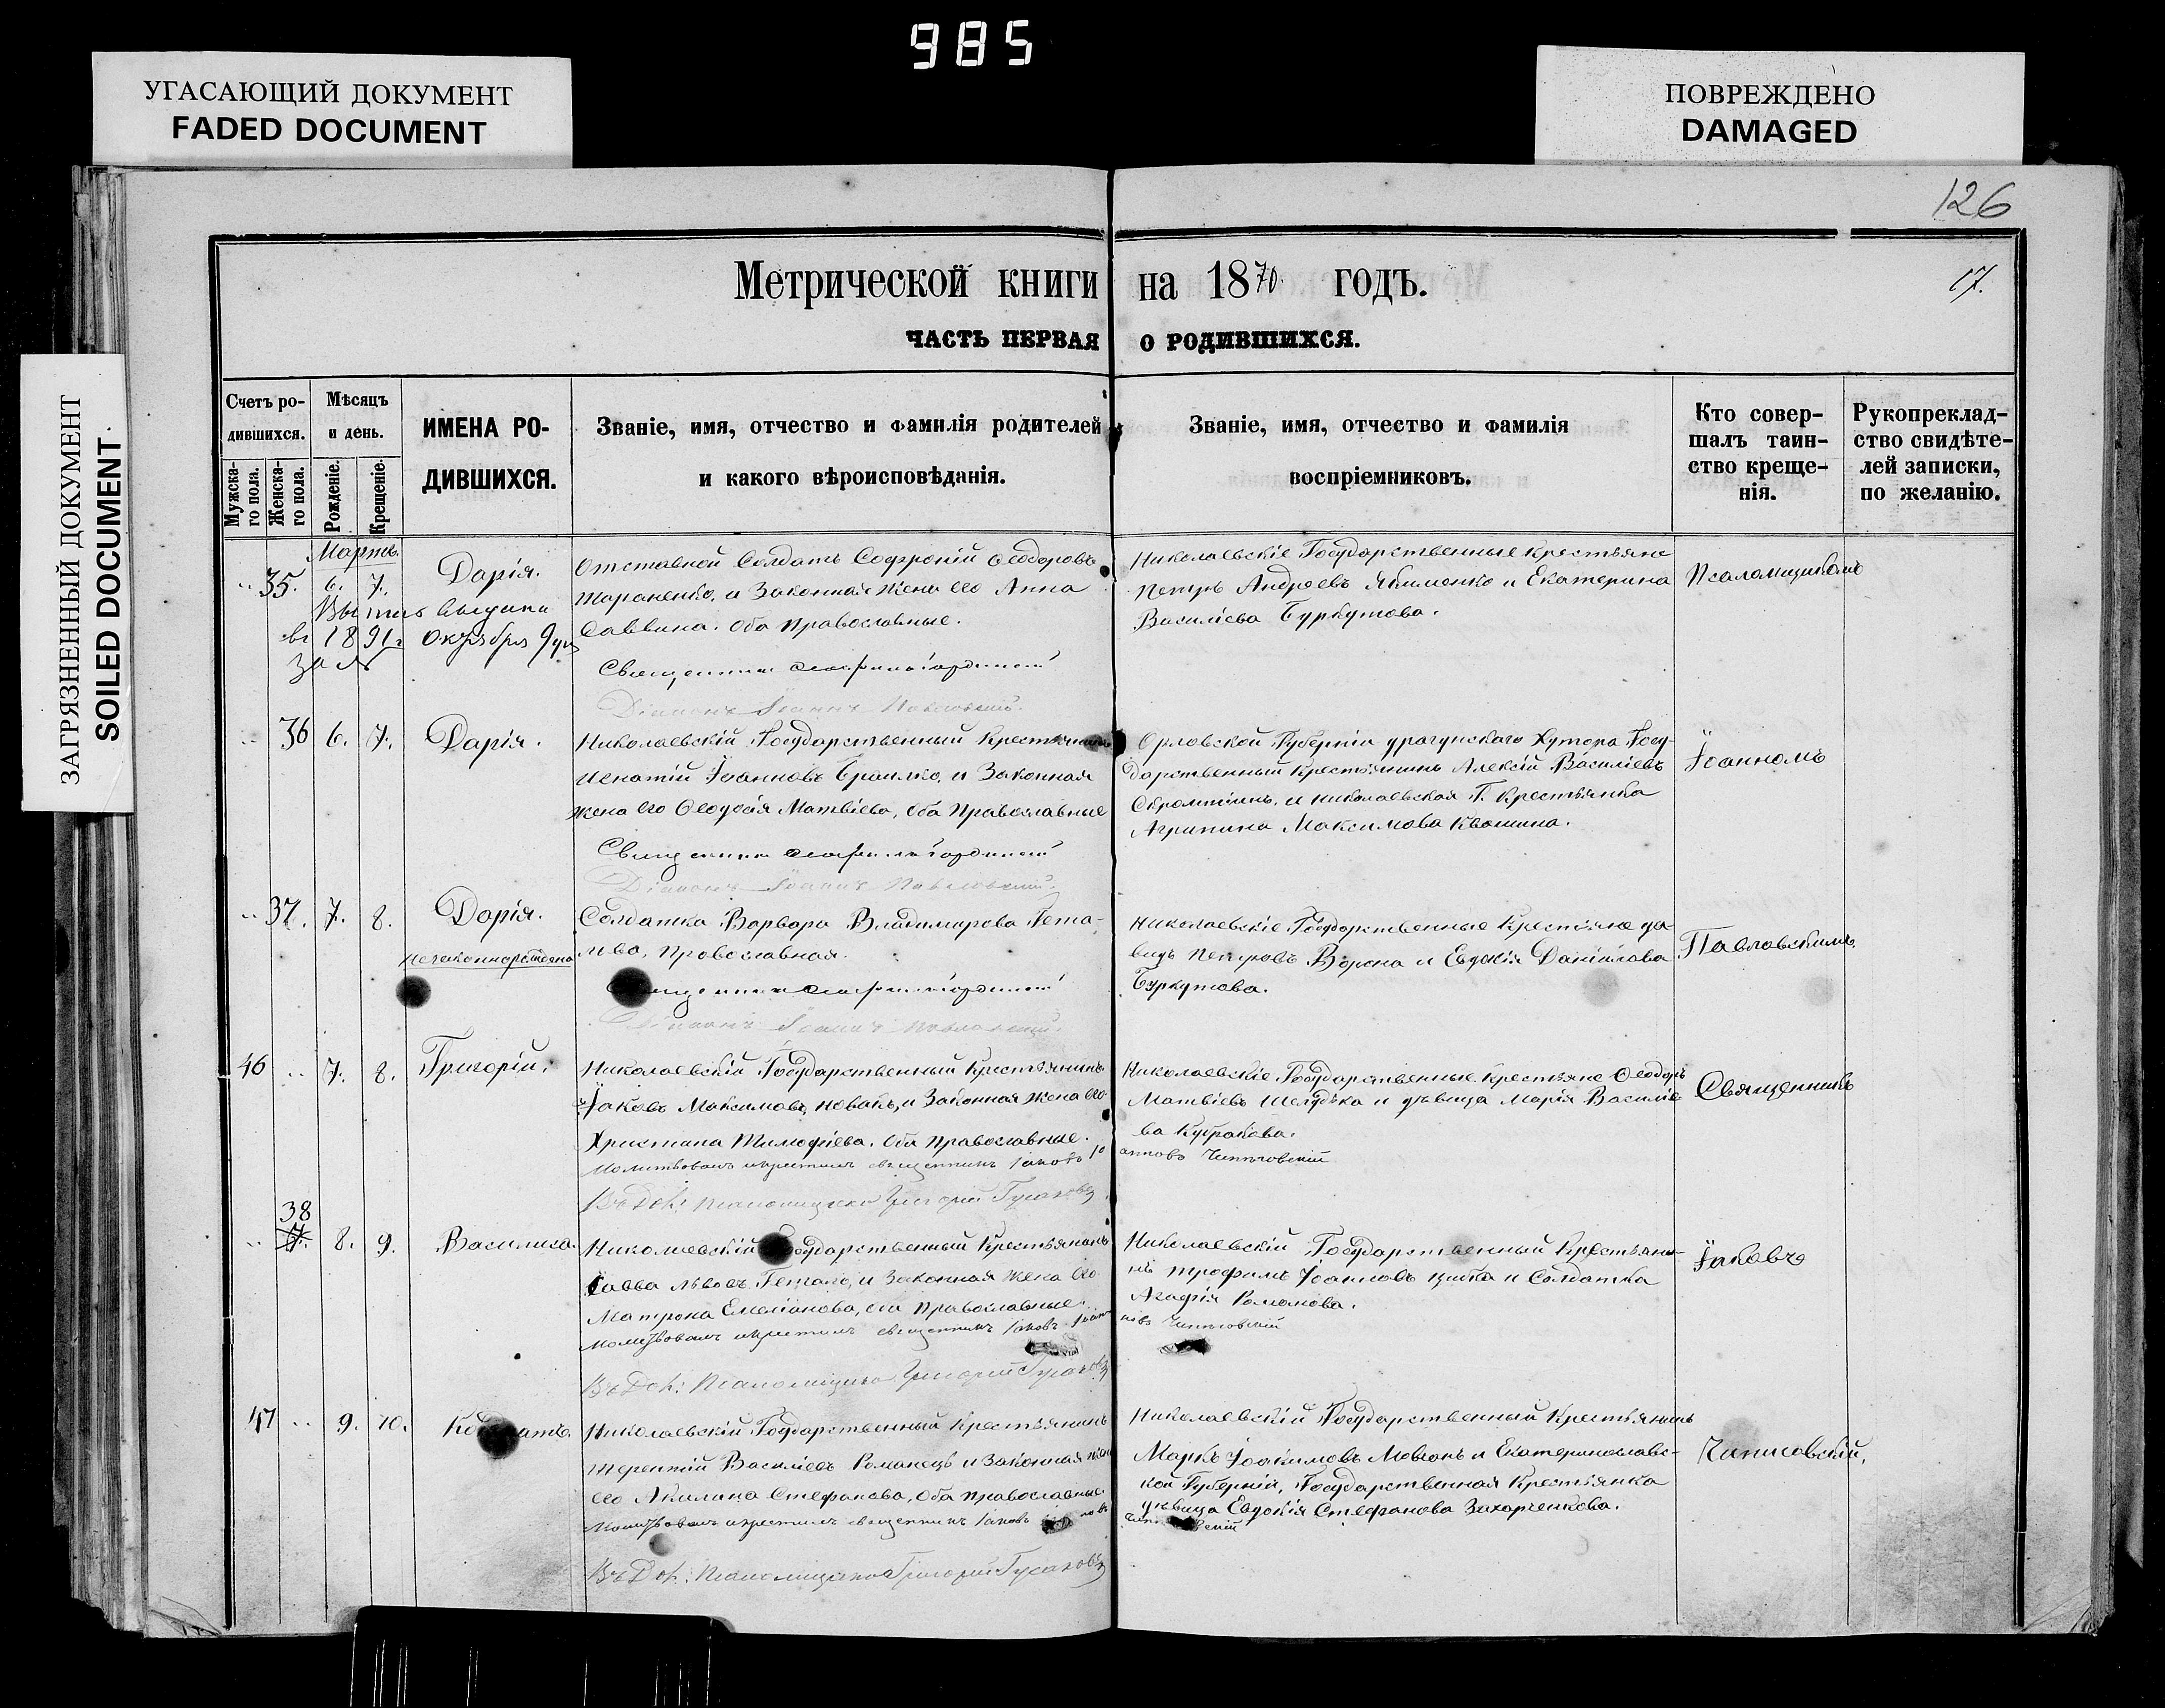 985
УГАСАЮЩИЙ ДОКУМЕНТ
FADED DOCUMENT
ПОВРЕЖДЕНО
DAMAGED
ЗАГРЯЗНЕННЫЙ ДОКУМЕНТ
SOILED DOCUMENT
126
Метрической книги на 1870. годъ.
17.
ЧАСТЬ ПЕРВАЯ О РОДИВШИХСЯ.
Счетъ ро-
дившихся.
Мужска-
го пола.
Женска-
го пола.
Мѣсяцъ
и день.
Рожденіе.
Крещеніе.
ИМЕНА РО-
ДИВШИХСЯ.
Званіе, имя, отчество и фамилія родителей
и какого вѣроисповѣданія.
Званіе, имя, отчество и фамилія
воспріемниковъ.
Кто совер-
шалъ таин-
ство креще-
нія.
Рукопреклад-
ство свидѣте-
лей записки,
по желанію.
Мартъ.
35. 6. 7. Дарія.
выдана
въ 1891 г. Октября 9 дня
за №
Отставной Солдатъ Софроній Ѳеодоровъ
Тараненко, и Законная жена его Анна
Саввина. Оба Православные.
Священникъ
Діаконъ Іоаннъ Павловскій.
Николаевскіе Государственные крестьяне
Петръ Андреевъ Якименко и Екатерина
Василіева Буркутова.
Псаломщикомъ
36 6. 7. Дарія.
Николаевскій Государственный Крестьянинъ
Игнатій Іоанновъ Браилко, и Законная
жена его Ѳеодосія Матвіева, Оба Православные
Священникъ
Діаконъ Іоаннъ Павловскій.
Орловской Губерніи Хутора Госу-
дарственный Крестьянинъ Алексій Василіевъ
и Николаевская Г. Крестьянка
Агрипина Максимова Квашина.
Іоанномъ
37. 7. 8. Дарія.
незаконнорожденна
Солдатка Варвара Владимирова Гета-
лова, Православная.
Діаконъ Іоаннъ Павловскій.
Николаевскіе Государственные Крестьяне Да-
видъ Петровъ Ворона и Евдокія Даніилова
Буркутова.
Павловскимъ
46 7. 8. Григорій.
Николаевскій Государственный Крестьянинъ
Іаковъ Максимовъ Новакъ, и Законная жена его
Христина Тимофіева. Оба Православные.
Молитвовалъ и крестилъ священникъ Іаковъ Іо
анновъ
Псаломщикъ Григорій Гусаковъ
Николаевскіе Государственные крестьяне Ѳеодоръ
Матвіевъ Шелудька и дѣвица Марія Василіе
ва Кубракова.
Священникъ
38
7. 8. 9. Василиса.
Николаевскій Государственный Крестьянинъ
Савва Львовъ Гетало, и Законная жена его
Матрона Емеліанова, Оба Православные.
Молитвовалъ и крестилъ священникъ Іаковъ Іоан
новъ
Псаломщикъ Григорій Гусаковъ
Николаевскій Государственный Крестьяни-
нъ Трофимъ Іоанновъ и Солдатка
Агафія Романова.
Іаковъ
47 9. 10.
Николаевскій Государственный Крестьянинъ
Терентій Василіевъ Романецъ и Законная жена
его Акилина Стефанова, Оба православные.
Молитвовалъ и крестилъ священникъ Іаковъ
Псаломщикъ Григорій Гусаковъ
Николаевскій Государственный Крестьянинъ
Маркъ Іоакимовъ и Екатеринославс-
кой Губерніи, Государственная Крестьянка
дѣвица Евдокія Стефанова Захарченкова.